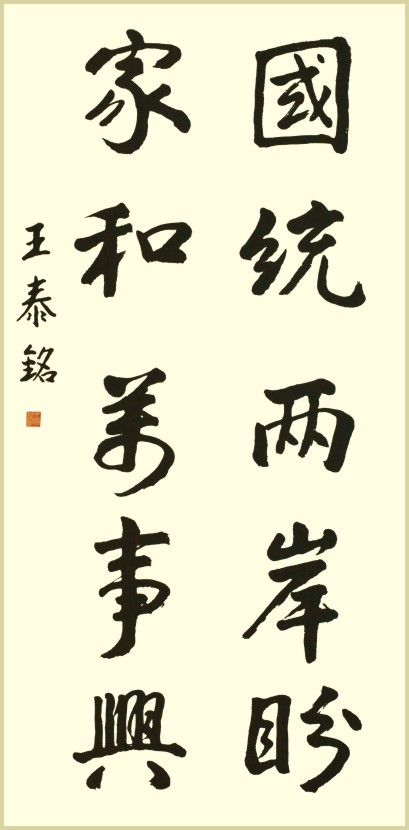 國統两岸盼
家和萬事興
王泰銘